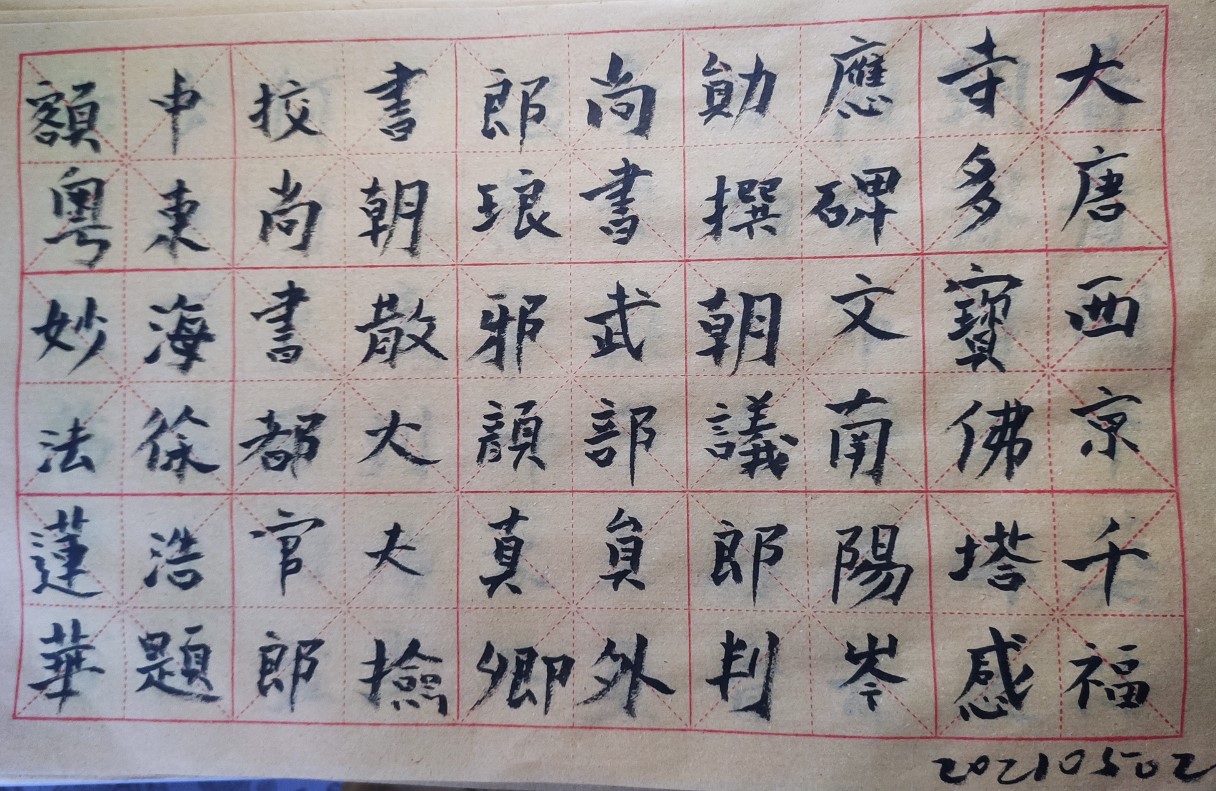 大唐西京千福
寺多寶佛塔感
應碑文南陽岑
勛撰朝議郎判
尚書武部員外
郎琅邪顏真卿
書朝散大夫撿
挍尚書都官郎
中東海徐浩題
額粵妙法蓮華
20210502